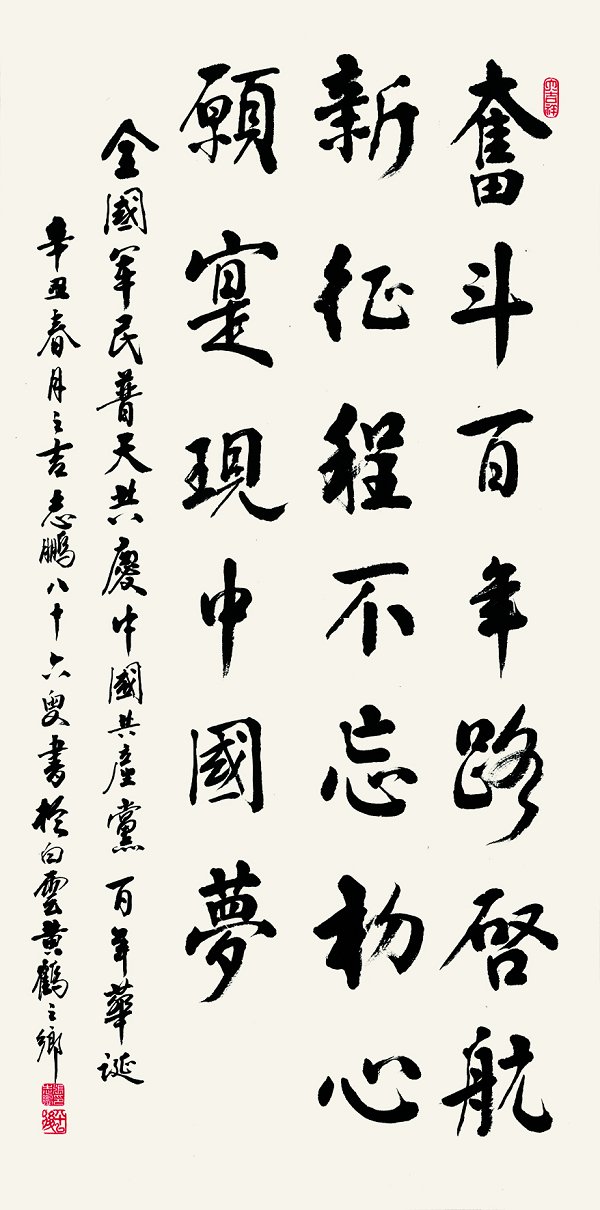 奮斗百年路啓航
新征程不忘初心
願寔現中國夢
全國軍民普天共慶中國共產黨百年華誕
辛丑春月之吉志鵬八十六叟書於白雲黃鶴之鄉